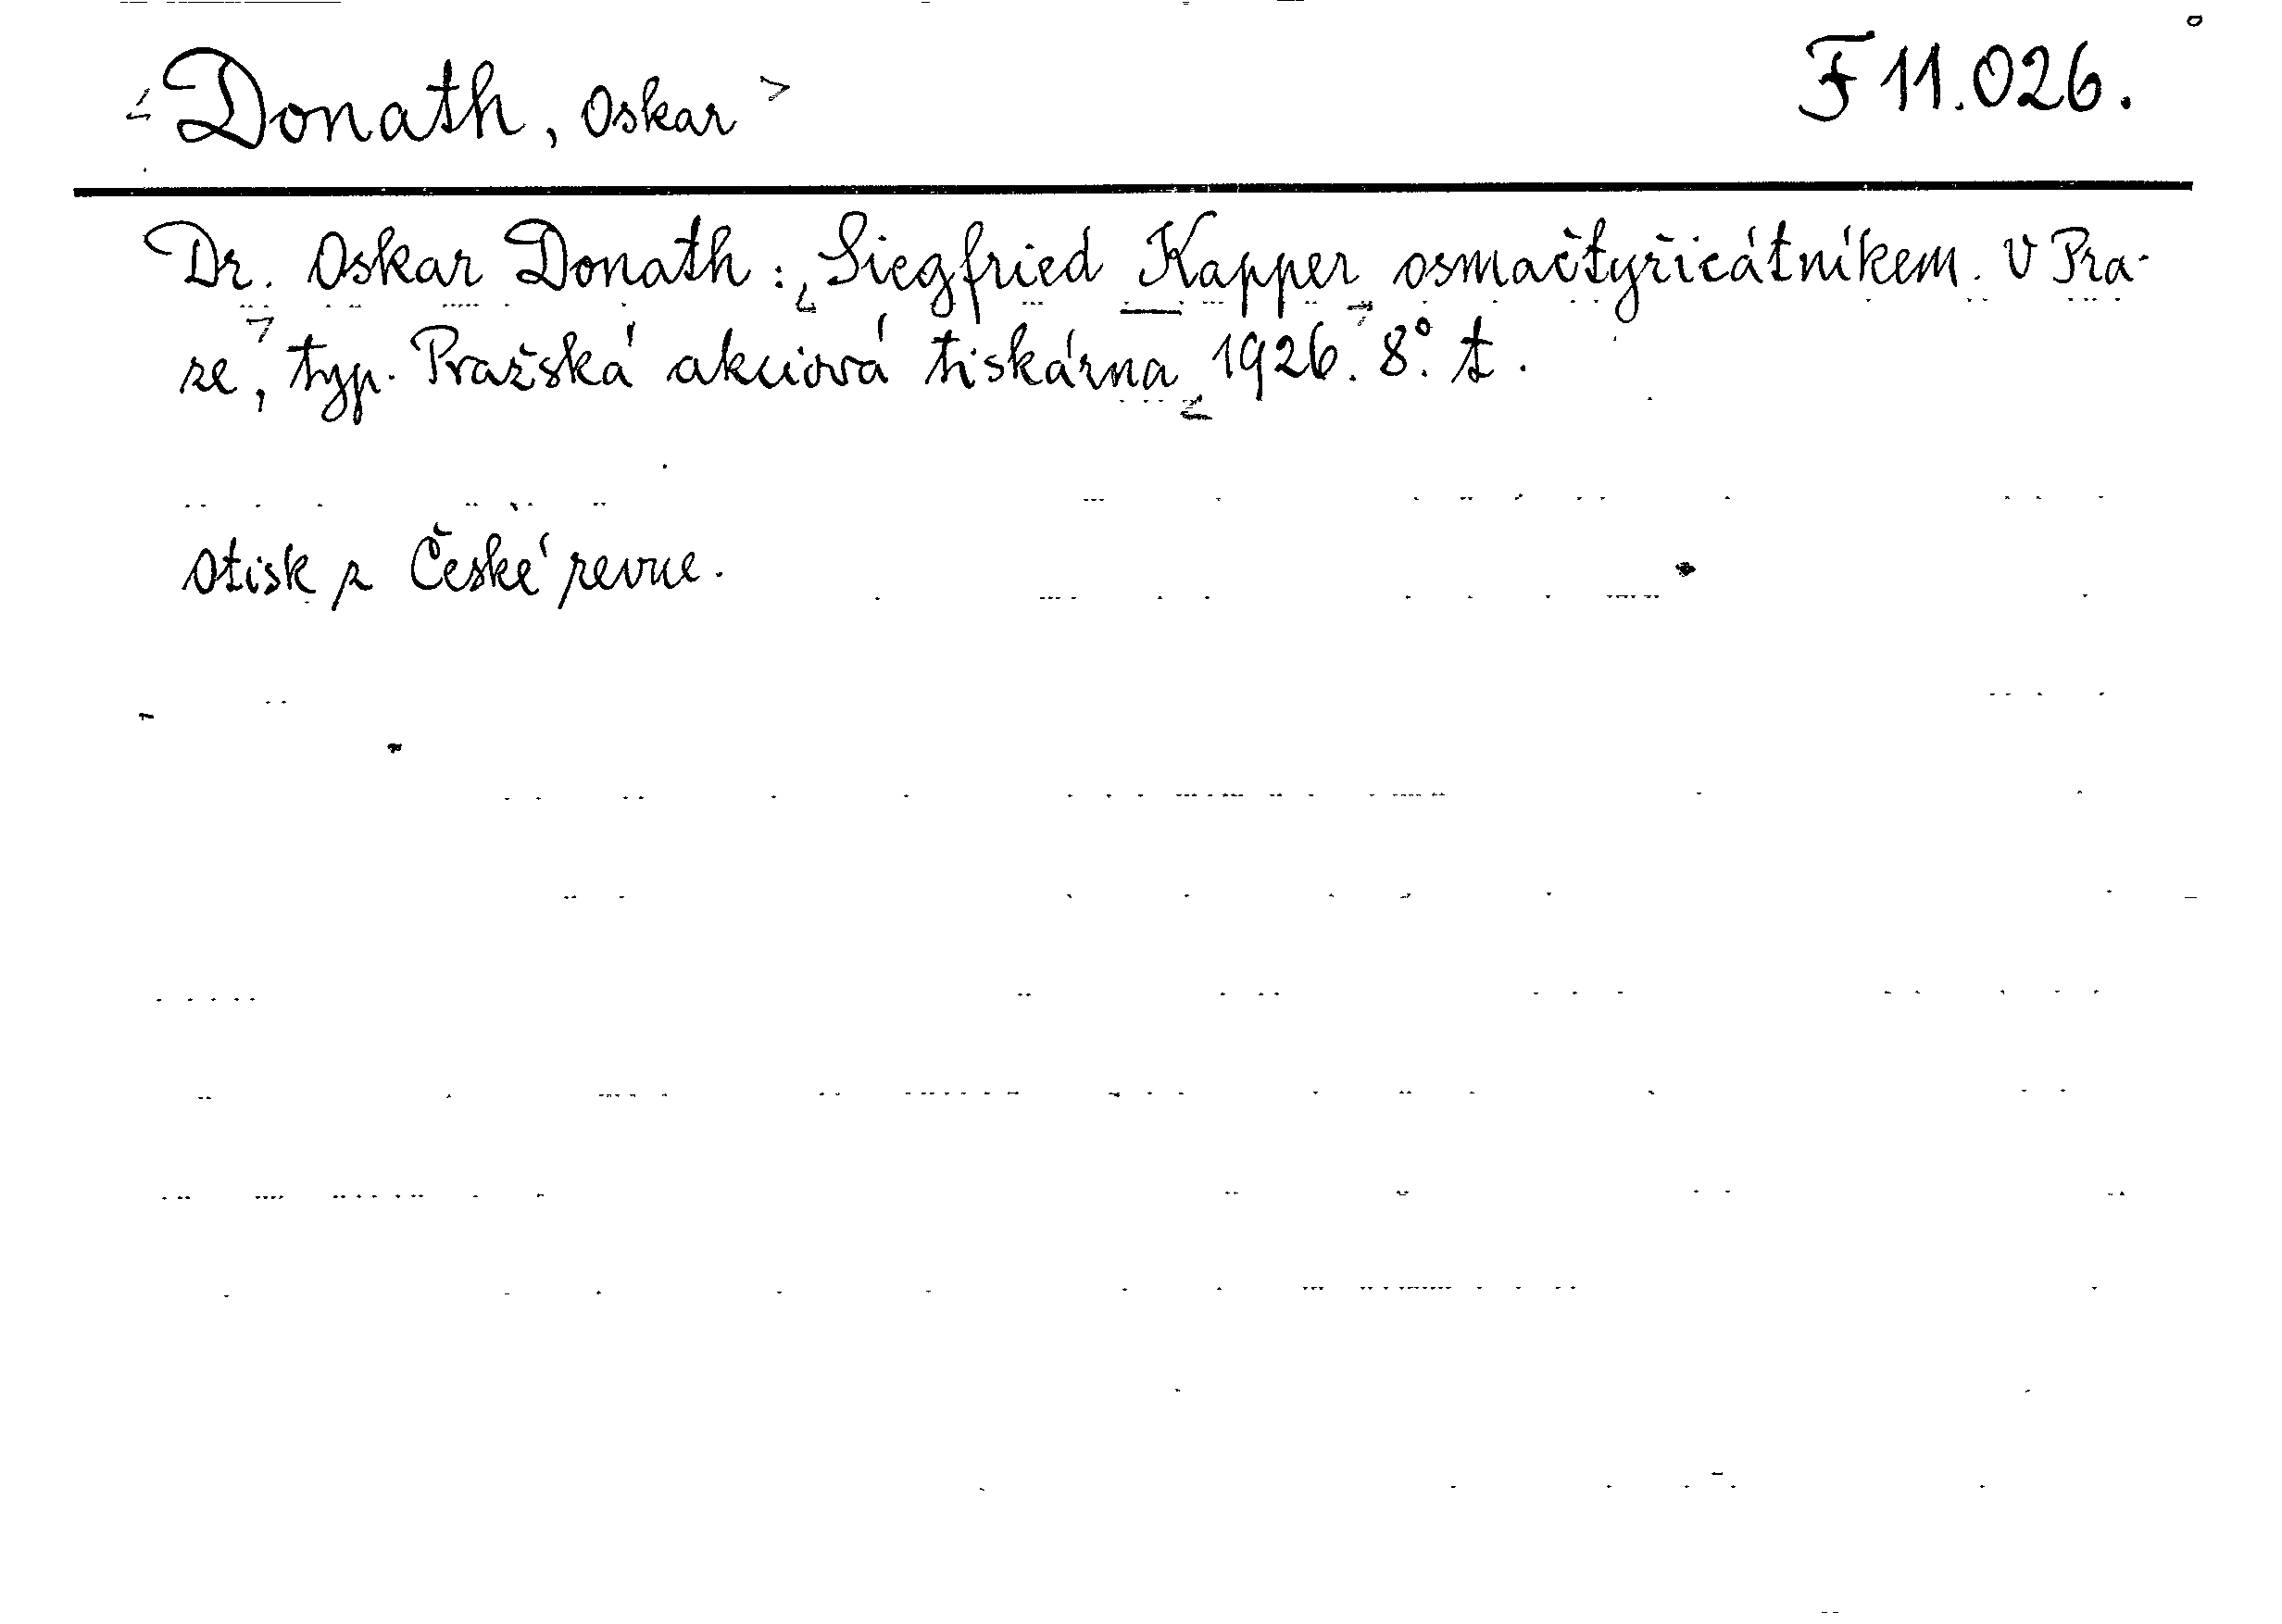 Donath, Oskar F 11.026.
Dr. Oskar Donath: Siegfried Kapper osmačtyřicátníkem. V Pra-
ze, typ. Pražská akciová tiskárna 1926. 8°. t.
Otisk z České revue.